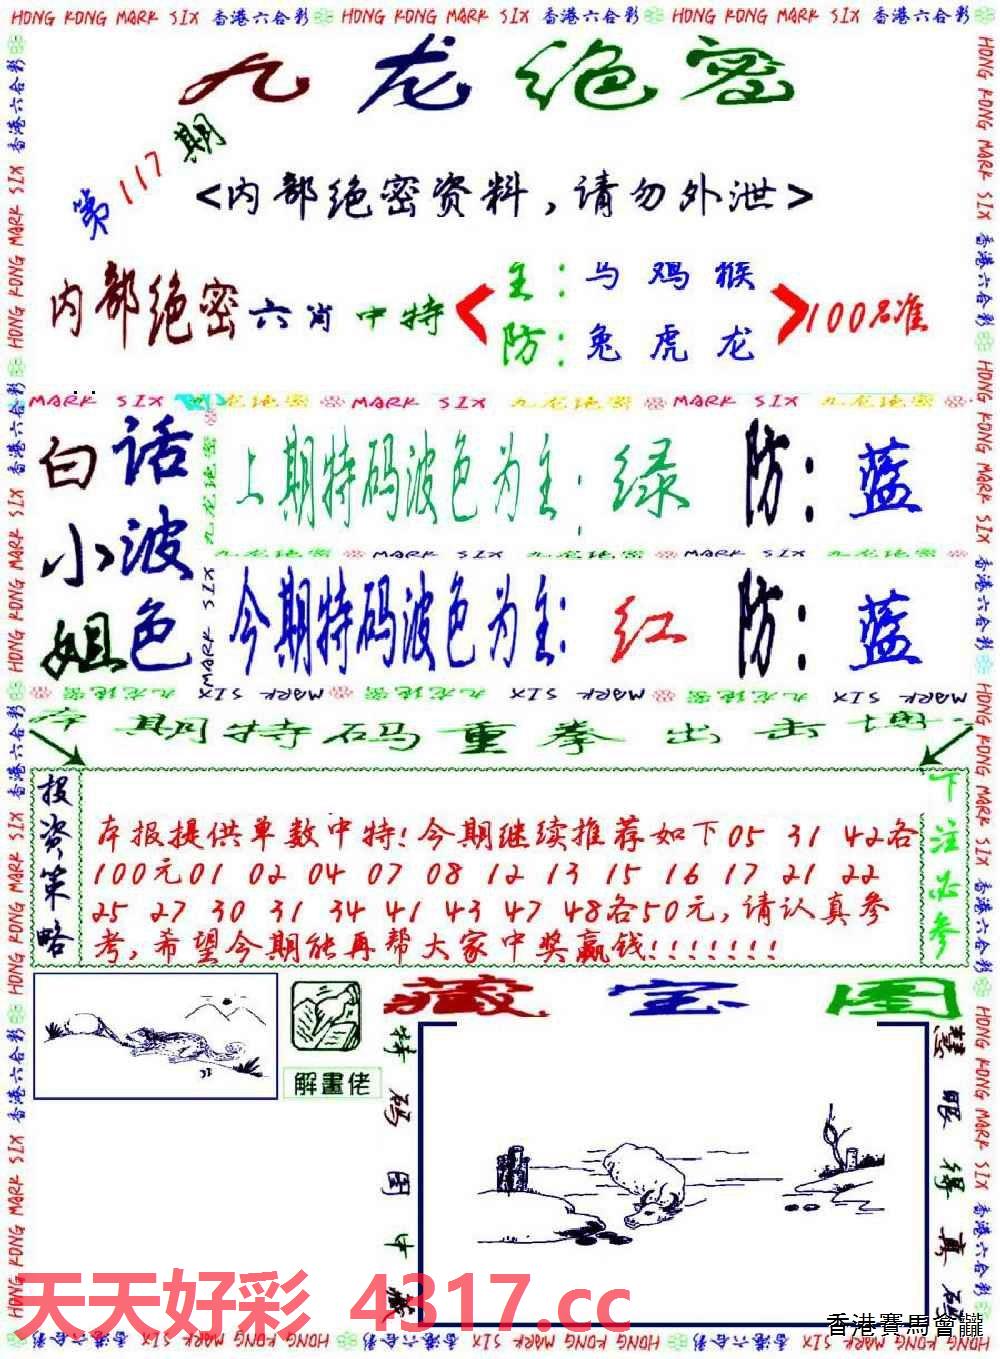 HONG KONG MARK SIX 香港六合彩 HONG KONG MARK SIX 香港六合彩 HONG KONG MARK SIX 香港六合彩
九龙绝密
第117期
<内部绝密资料,请勿外泄>
内部绝密六肖中特
主:马鸡猴
防:兔虎龙
100%准
MARK SIX 九龙绝密 MARK SIX 九龙绝密 MARK SIX 九龙绝密
白小姐
话波色
上期特码波色为主:绿 防:蓝
九龙绝密 MARK SIX 九龙绝密 MARK SIX 九龙绝密
今期特码波色为主:红 防:蓝
MARK SIX 九龙绝密 MARK SIX 九龙绝密 MARK SIX 九龙绝密
本期特码重拳出击
投资策略
本报提供单数中特!今期继续推荐如下05 31 42各
100元01 02 04 07 08 12 13 15 16 17 21 22
25 27 30 31 34 41 43 47 48各50元,请认真参
考,希望今期能再帮大家中奖赢钱!!!!!!!
下注必参
藏宝图
解畫佬
特码图中藏
慧眼得真码
天天好彩 4317.cc
香港賽馬會
HONG KONG MARK SIX 香港六合彩 HONG KONG MARK SIX 香港六合彩 HONG KONG MARK SIX 香港六合彩